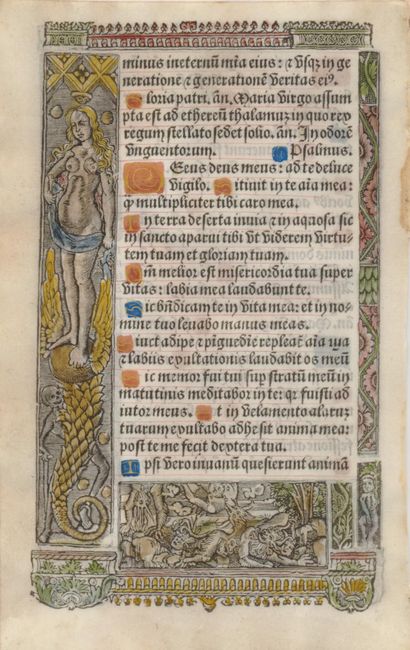 minus ineternū mīa eius: ⁊ vsqꝫ in ge
neratione ⁊ generationē veritas eiꝰ.
Gloria patri. añ. Maria virgo assum
pta est ad ethereū thalamuꝫ in quo rex
regum stellato sedet solio. añ. In odorē
vnguentorum. Psalmus.
Deus deus meus: ad te de luce
vigilo. Sitiuit in te aīa mea:
qͫ multipliciter tibi caro mea.
In terra deserta inuia ⁊ in aquosa sic
in sancto aparui tibi vt viderem virtu-
tem tuam et gloriam tuam.
Qm̄ melior est misericordia tua super
vitas: labia mea laudabunt te.
Sic bn̄dicam te in vita mea: et in no-
mine tuo leuabo manus meas.
Sicut adipe ⁊ pīguedie repleat̄ aīa mea
⁊ labiis exultationis laudabit os meū
Sic memor fui tui sup̄ stratū meū in
matutinis meditabor in te: qꝛ fuisti ad
iutor meus. Et in velamento alaruꝫ
tuarum exultabo adhesit anima mea:
post te me fecit dextera tua.
Ipsi vero inuanū quesierunt animā